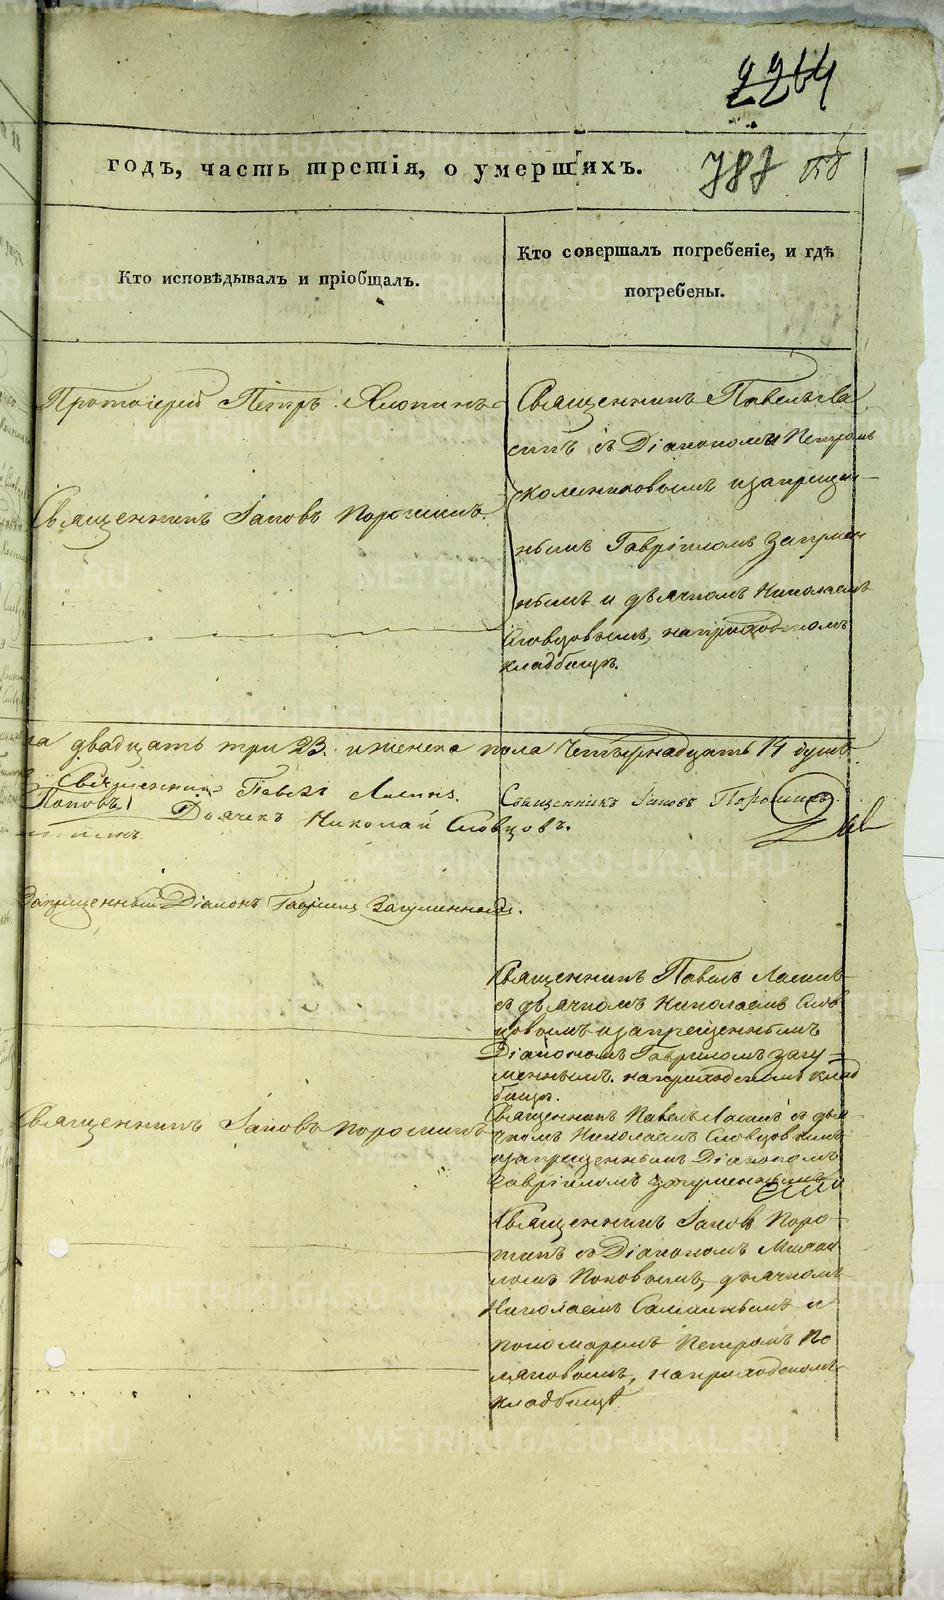 2264
годъ, часть третія, о умершихъ.
787 об
Кто исповѣдывалъ и пріобщалъ.
Кто совершалъ погребеніе, и гдѣ
погребены.
Протоіерей Петръ Хлопинъ
Священникъ Іаковъ Порошинъ.
Священникъ Павелъ Ла
съ Діакономъ Петромъ
изапрещен-
нымъ Гавріиломъ Загумен
нымъ и дьячкомъ Николаемъ
Словцовымъ, наприходскомъ
кладбищѣ.
двадцать три 23. иженска пола Четырнадцать 14 душъ.
Священникъ Павелъ
Поповъ Дьячекъ Николай Словцовъ.
Священникъ Іаковъ Порошинъ.
Запрещенный Діаконъ Гавріилъ Загуменныхъ.
Священникъ Павелъ
съ дьячкомъ Николаемъ Слов
цовымъ изапрещеннымъ
Діакономъ Гавриломъ Загу-
меннымъ. наприходскомъ клад
бищѣ.
Священникъ Іаковъ Порошинъ
Священникъ Павелъ съ дья
чкомъ Николаемъ Словцовымъ
изапрещеннымъ Діакономъ
Гавріиломъ Загуменнымъ
Священникъ Іаковъ Поро-
шинъ съ Діакономъ Михаи
ломъ Поповымъ, дьячкомъ
Николаемъ и
пономаремъ Петромъ По
наприходскомъ
кладбищѣ
METRIKI.GASO-URAL.RU